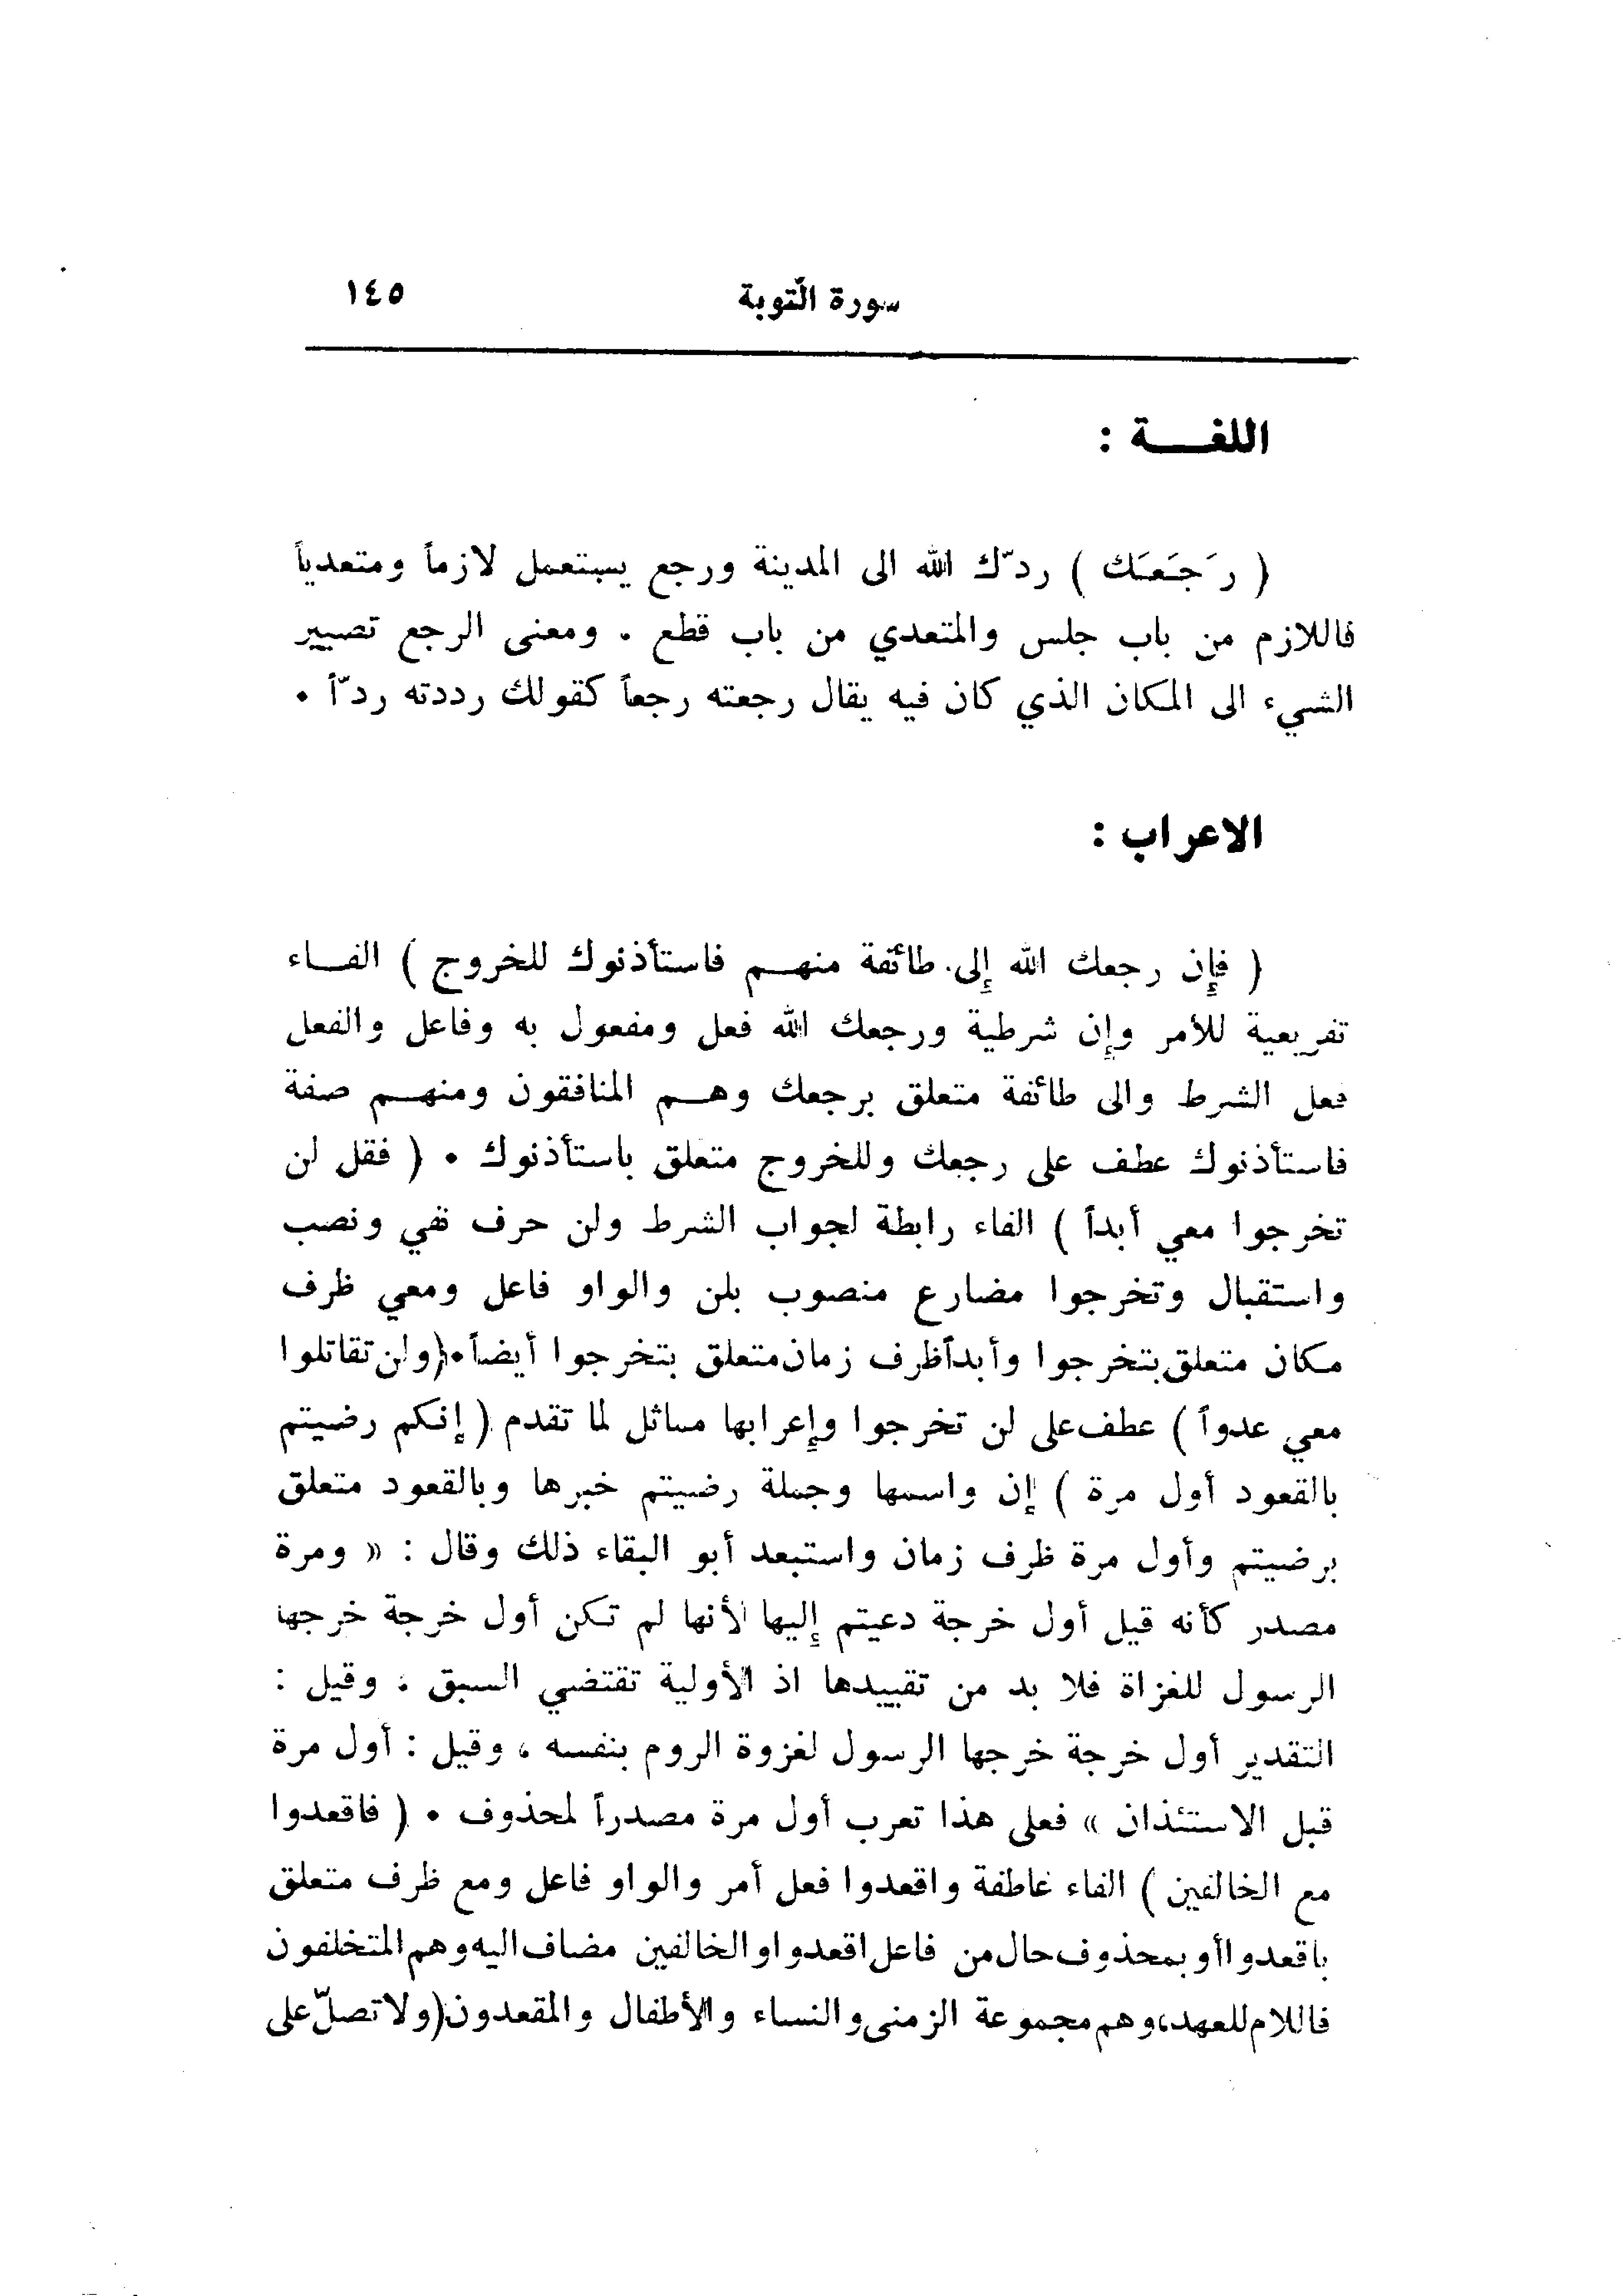 سورة التّوبة ١٤٥
اللغـــة :
( رَجَعَك ) ردّك الله الى المدينة ورجع يستعمل لازماً ومتعدياً
فاللازم من باب جلس والمتعدي من باب قطع . ومعنى الرجع تصيير
الشيء الى المكان الذي كان فيه يقال رجعته رجعاً كقولك رددته ردّاً .
الاعراب :
( فإن رجعك الله إلى طائفة منهــم فاستأذنوك للخروج ) الفــاء
تفريعية للأمر وإن شرطية ورجعك الله فعل ومفعول به وفاعل والفعل
فعل الشرط والى طائفة متعلق برجعك وهــم المنافقون ومنهــم صفة
فاستأذنوك عطف على رجعك وللخروج متعلق باستأذنوك . ( فقل لن
تخرجوا معي أبداً ) الفاء رابطة لجواب الشرط ولن حرف نفي ونصب
واستقبال وتخرجوا مضارع منصوب بلن والواو فاعل ومعي ظرف
مكان متعلق بتخرجوا وأبداً ظرف زمان متعلق بتخرجوا أيضاً . ( ولن تقاتلوا
معي عدواً ) عطف على لن تخرجوا وإعرابها مماثل لما تقدم ( إنكم رضيتم
بالقعود أول مرة ) إن واسمها وجملة رضيتم خبرها وبالقعود متعلق
برضيتم وأول مرة ظرف زمان واستبعد أبو البقاء ذلك وقال : « ومرة
مصدر كأنه قيل أول خرجة دعيتم إليها لأنها لم تكن أول خرجة خرجها
الرسول للغزاة فلا بد من تقييدها اذ الأولية تقتضي السبق ، وقيل :
التقدير أول خرجة خرجها الرسول لغزوة الروم بنفسه ، وقيل : أول مرة
قبل الاستئذان » فعلى هذا تعرب أول مرة مصدراً لمحذوف . ( فاقعدوا
مع الخالفين ) الفاء عاطفة واقعدوا فعل أمر والواو فاعل ومع ظرف متعلق
باقعدوا أو بمحذوف حال من فاعل اقعدوا والخالفين مضاف اليه وهم المتخلفون
فاللام للعهد، وهم مجموعة الزمنى والنساء والأطفال والمقعدون ( ولا تصلّ على